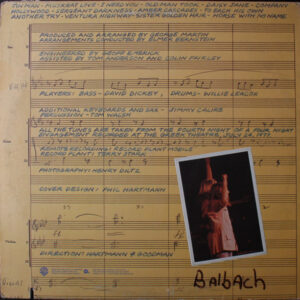 TIN MAN · MUSKRAT LOVE · I NEED YOU · OLD MAN TOOK · DAISY JANE · COMPANY
HOLLYWOOD · SERGEANT DARKNESS · AMBER CASCADES · TO EACH HIS OWN
ANOTHER TRY · VENTURA HIGHWAY · SISTER GOLDEN HAIR · HORSE WITH NO NAME
PRODUCED AND ARRANGED BY GEORGE MARTIN
ARRANGEMENTS CONDUCTED BY ELMER BERNSTEIN
ENGINEERED BY GEOFF EMERICK
ASSISTED BY TOM ANDERSON AND COLIN FAIRLEY
PLAYERS: BASS - DAVID DICKEY, DRUMS - WILLIE LEACOX
ADDITIONAL KEYBOARDS AND SAX - JIMMY CALIRE
PERCUSSION - TOM WALSH
ALL THE TUNES ARE TAKEN FROM THE FOURTH NIGHT OF A FOUR NIGHT
ENGAGEMENT RECORDED AT THE GREEK THEATRE, JULY 29, 1977.
REMOTE RECORDING: RECORD PLANT MOBILE
RECORD PLANT: TERRY STARK
PHOTOGRAPHY: HENRY DILTZ
COVER DESIGN: PHIL HARTMANN
DIRECTION: HARTMANN & GOODMAN
Balbach